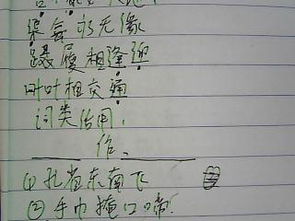 渠每永无缘
蹑履相逢迎
叶叶相交通
词类活用.
作
(1)孔雀东南飞
(2)手巾掩口啼.